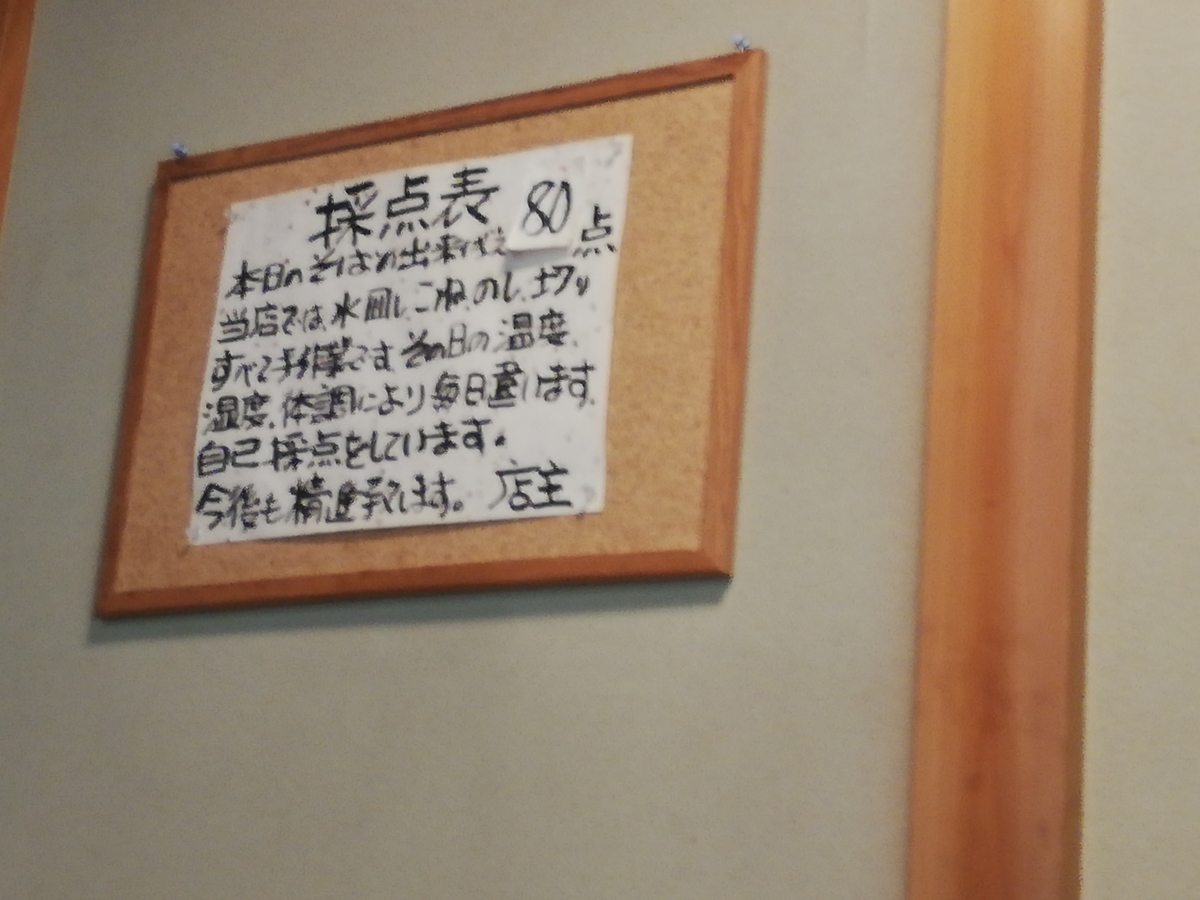 採点表
本日のそばの出来ばえ 80点
当店では、水回し、こね、のし、切り
すべて手作業です。その日の温度、
湿度、体調により毎日違います。
自己採点をしています。
今後も精進致します。 店主